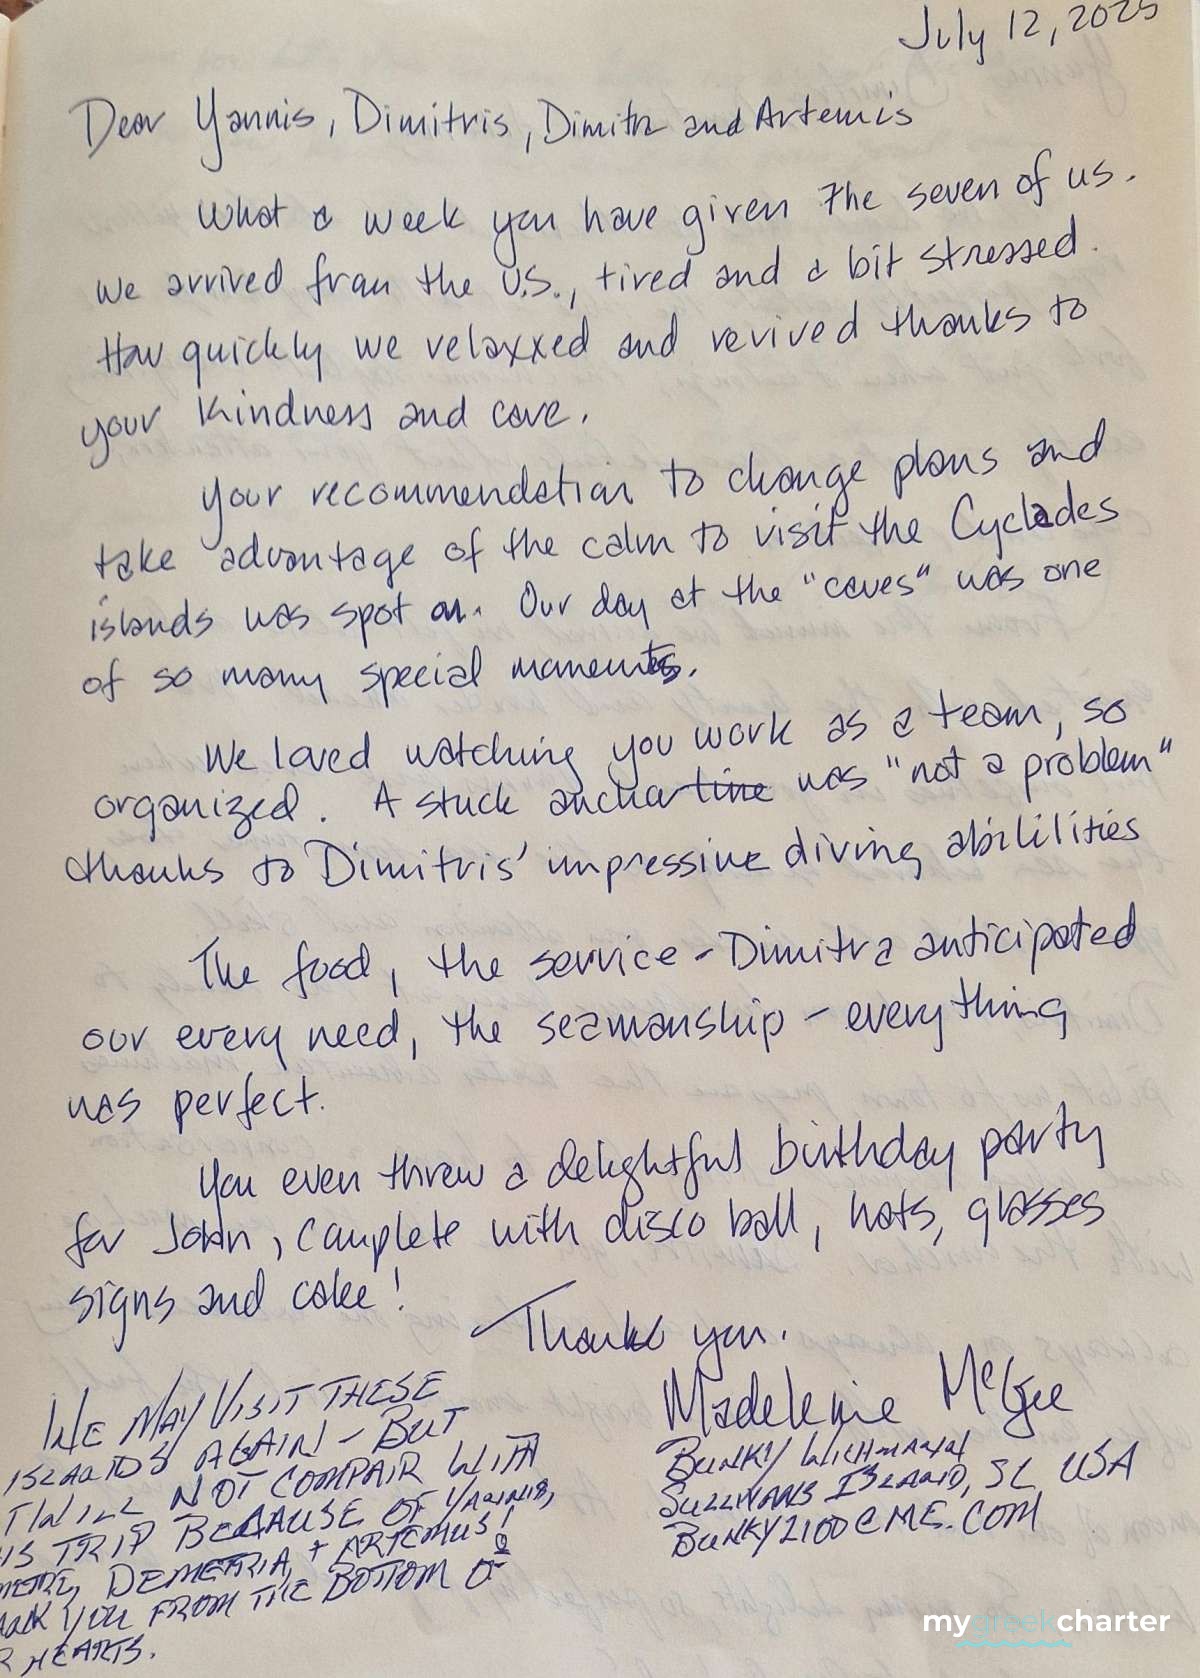 July 12, 2025
Dear Yannis, Dimitris, Dimitra and Artemis
What a week you have given the seven of us.
We arrived from the U.S., tired and a bit stressed.
How quickly we relaxxed and revived thanks to
your kindness and care.
Your recommendation to change plans and
take advantage of the calm to visit the Cyclades
islands was spot on. Our day at the "caves" was one
of so many special moments.
We loved watching you work as a team, so
organized. A stuck anchor line was "not a problem"
thanks to Dimitris' impressive diving abilities
The food, the service - Dimitra anticipated
our every need, the seamanship - everything
was perfect.
You even threw a delightful birthday party
for John, complete with disco ball, hats, glasses
signs and cake!
Thank you.
Madeleine McGee
BUNKY WICHMANN
SULLIVANS ISLAND, SC USA
BUNKY2100@ME.COM
WE MAY VISIT THESE
ISLANDS AGAIN - BUT
IT WILL NOT COMPAIR WITH
IS TRIP BECAUSE OF YANNIS,
DEMETRIA, + ARTEMUS!
YOU FROM THE BOTTOM OF
HEARTS.
mygreekcharter